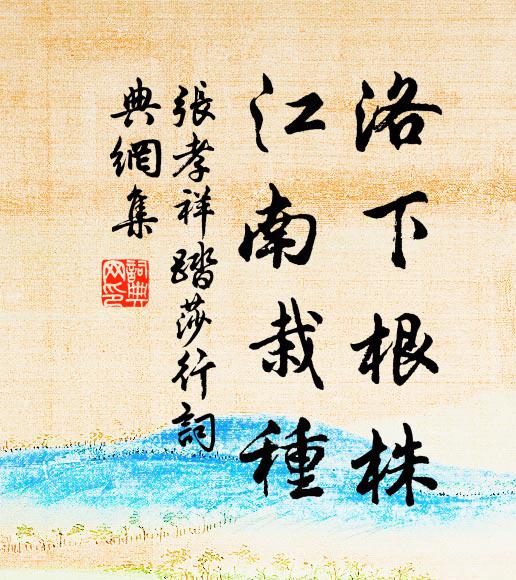 洛下根株
江南栽種
張孝祥踏莎行詞
典網集
詞典
网印